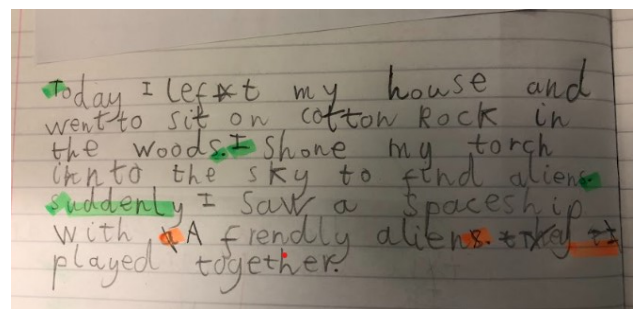 Today I left my house and
went to sit on cotton Rock in
the woods. I shone my torch
innto the sky to find aliens.
suddenly I saw a spaceship
with A frendly aliens.
played together.